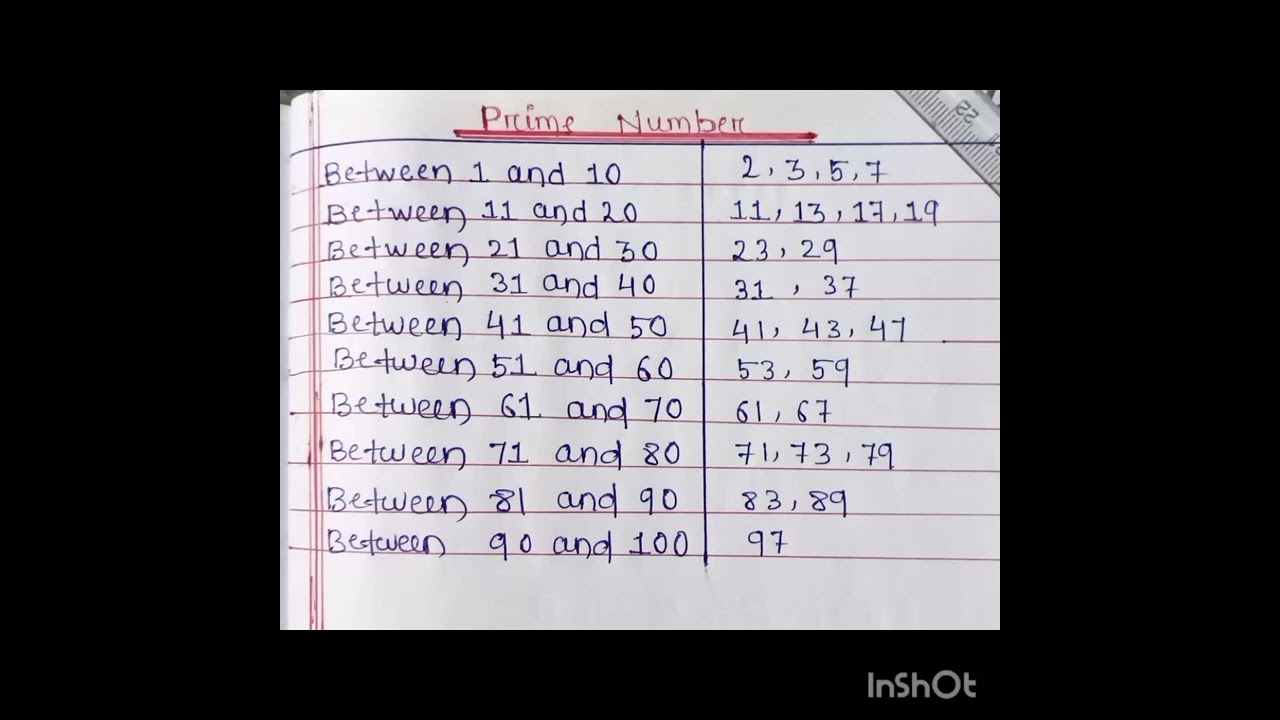 Prime Number
Between 1 and 10 2, 3, 5, 7
Between 11 and 20 11, 13, 17, 19
Between 21 and 30 23, 29
Between 31 and 40 31, 37
Between 41 and 50 41, 43, 47
Between 51 and 60 53, 59
Between 61 and 70 61, 67
Between 71 and 80 71, 73, 79
Between 81 and 90 83, 89
Between 90 and 100 97
InShOt